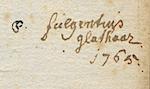 P. fulgentius
glashaar
1765.